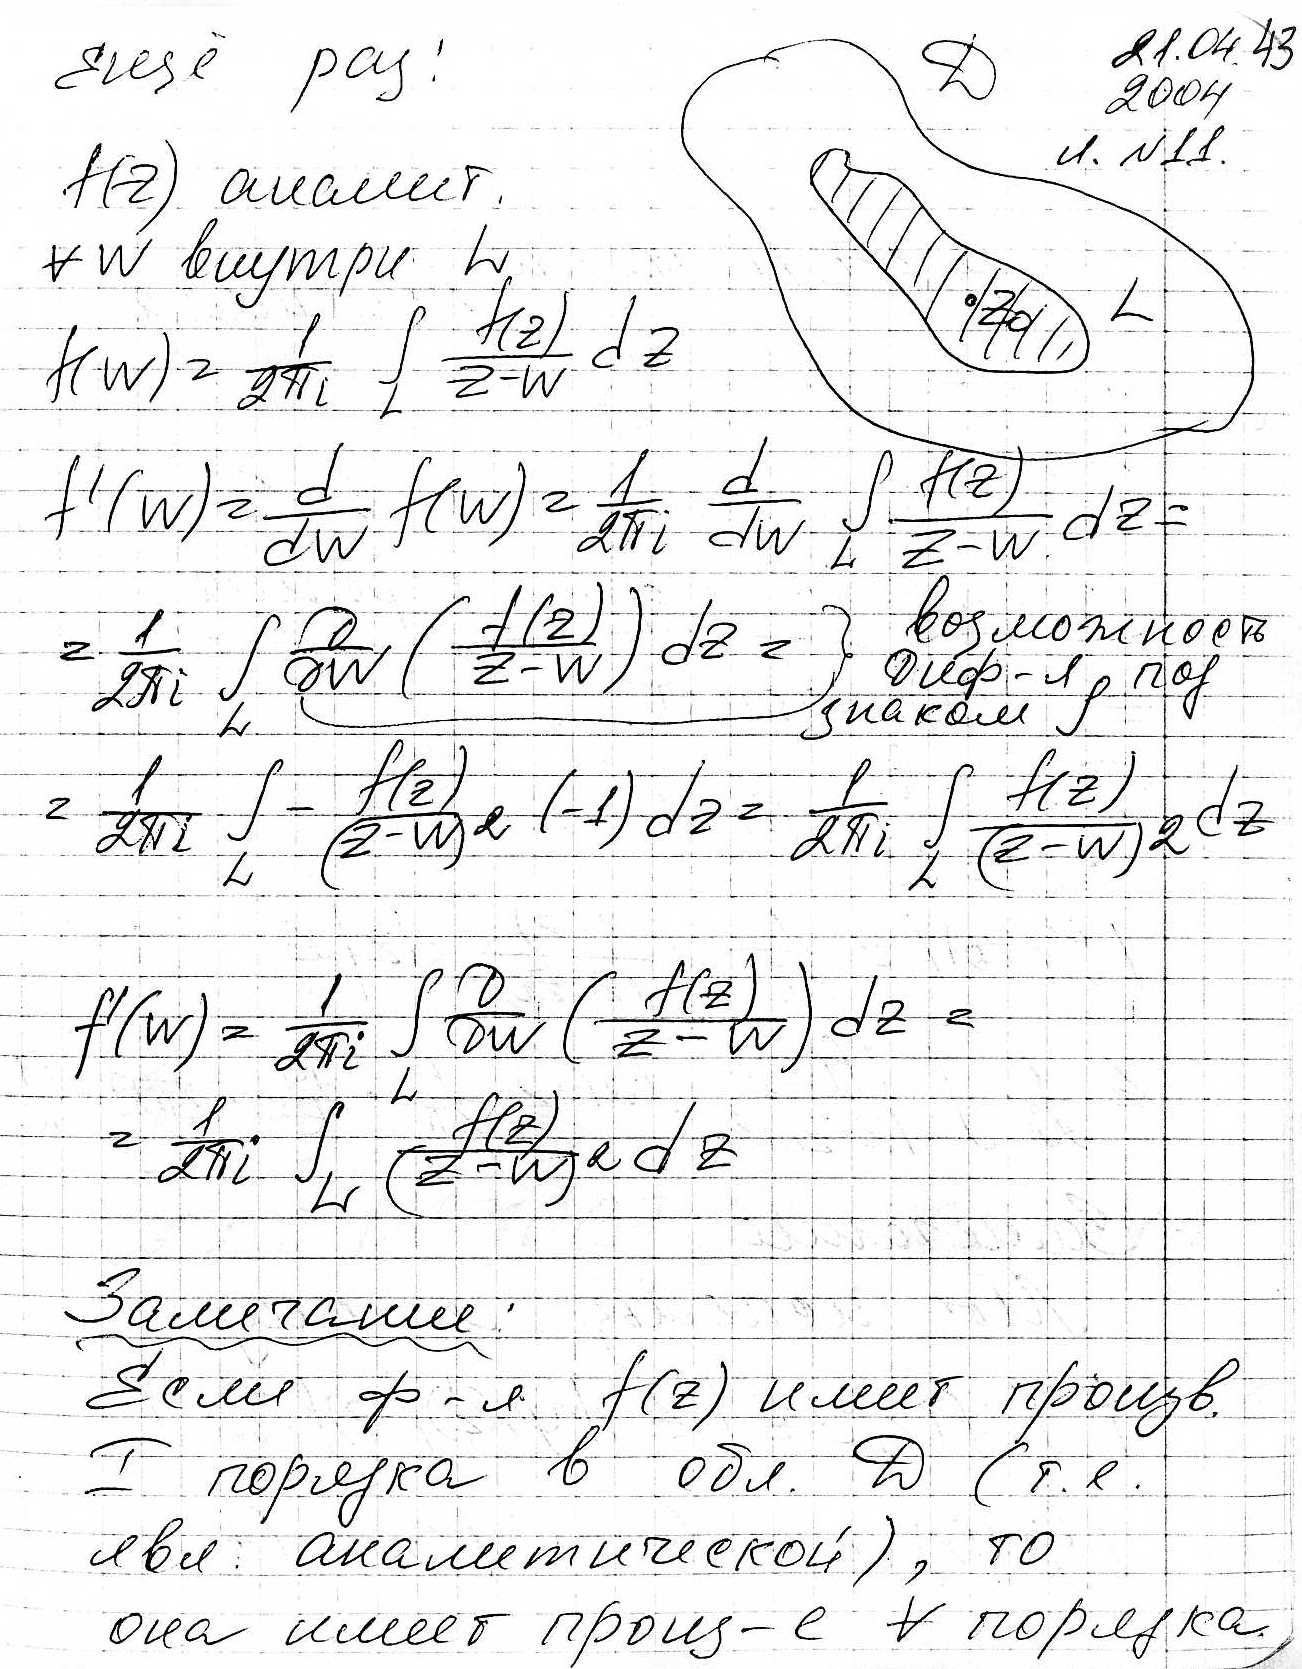 Ещё раз!
21.04.43
2004
л. N11.
D
f(z) аналит.
∀ W внутри L
•Z₀
L
f(W) = 1/2πi ∫_L f(z)/(z-W) dz
f'(W) = d/dW f(W) = 1/2πi d/dW ∫_L f(z)/(z-W) dz =
= 1/2πi ∫_L ∂/∂W ( f(z)/(z-W) ) dz = } возможность
диф-я под
знаком ∫
= 1/2πi ∫_L - f(z)/(z-W)² (-1) dz = 1/2πi ∫_L f(z)/(z-W)² dz
f'(W) = 1/2πi ∫_L ∂/∂W ( f(z)/(z-W) ) dz =
= 1/2πi ∫_L f(z)/(z-W)² dz
Замечание:
Если ф-я f(z) имеет произв.
I порядка в обл. D (т.е.
явл. аналитической), то
она имеет произ-е ∀ порядка.